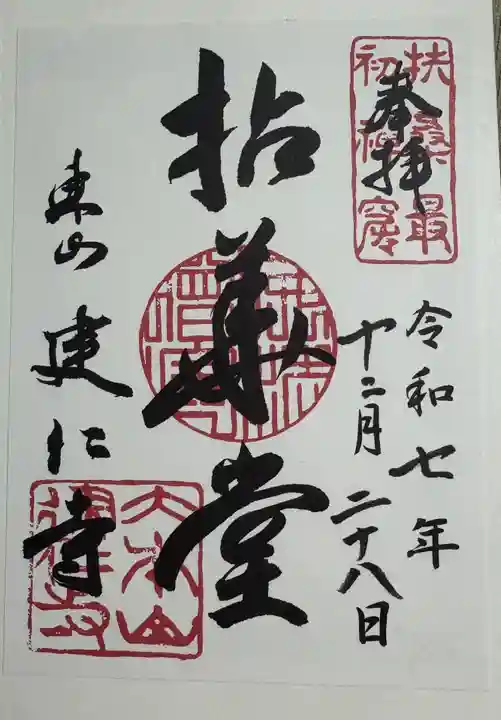 扶桑最
初禅窟
奉拝
令和七年
十二月二十八日
拈華堂
東山建仁寺
大本山
建仁寺